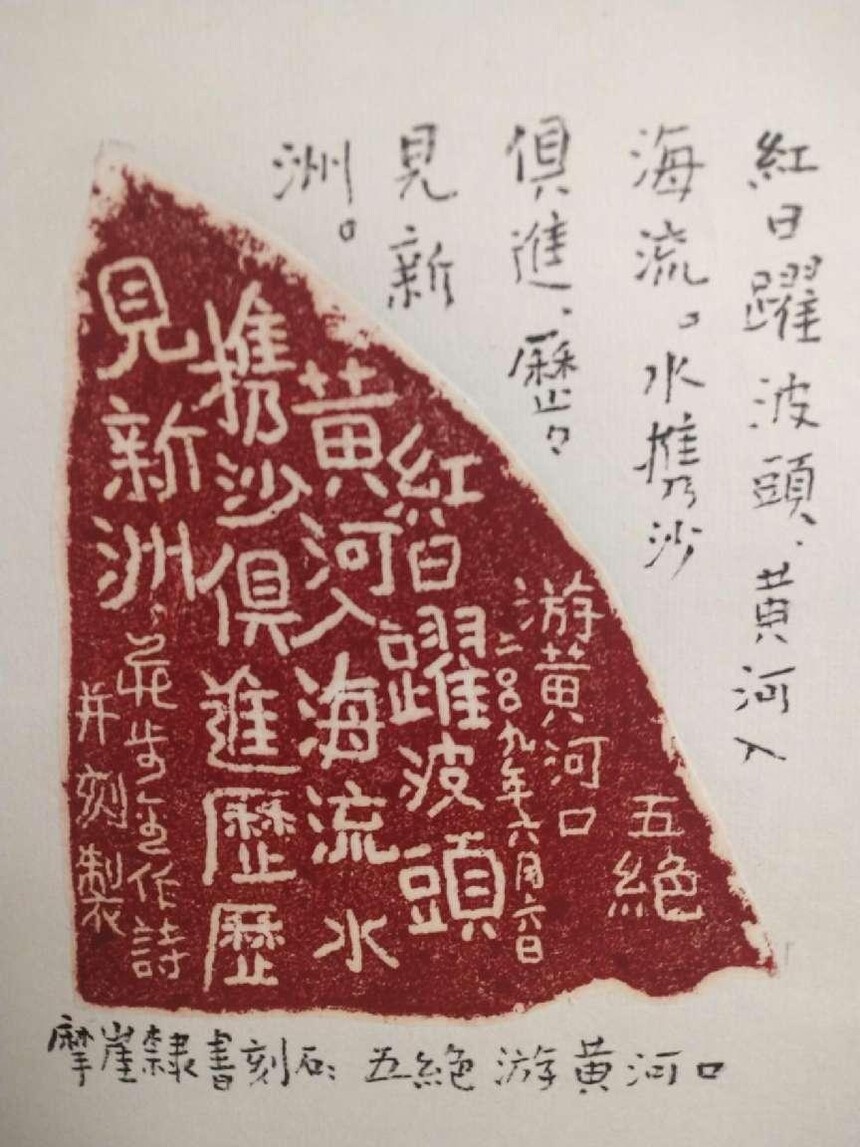 紅日躍波頭、黄河入
海流。水携沙
俱進、歷々
見新
洲。
五絕
游黄河口
二〇〇九年六月六日
紅日躍波頭
黄河入海流水
携沙俱進歷歷
見新洲
作詩
并刻製
摩崖隸書刻石：五絕 游黄河口